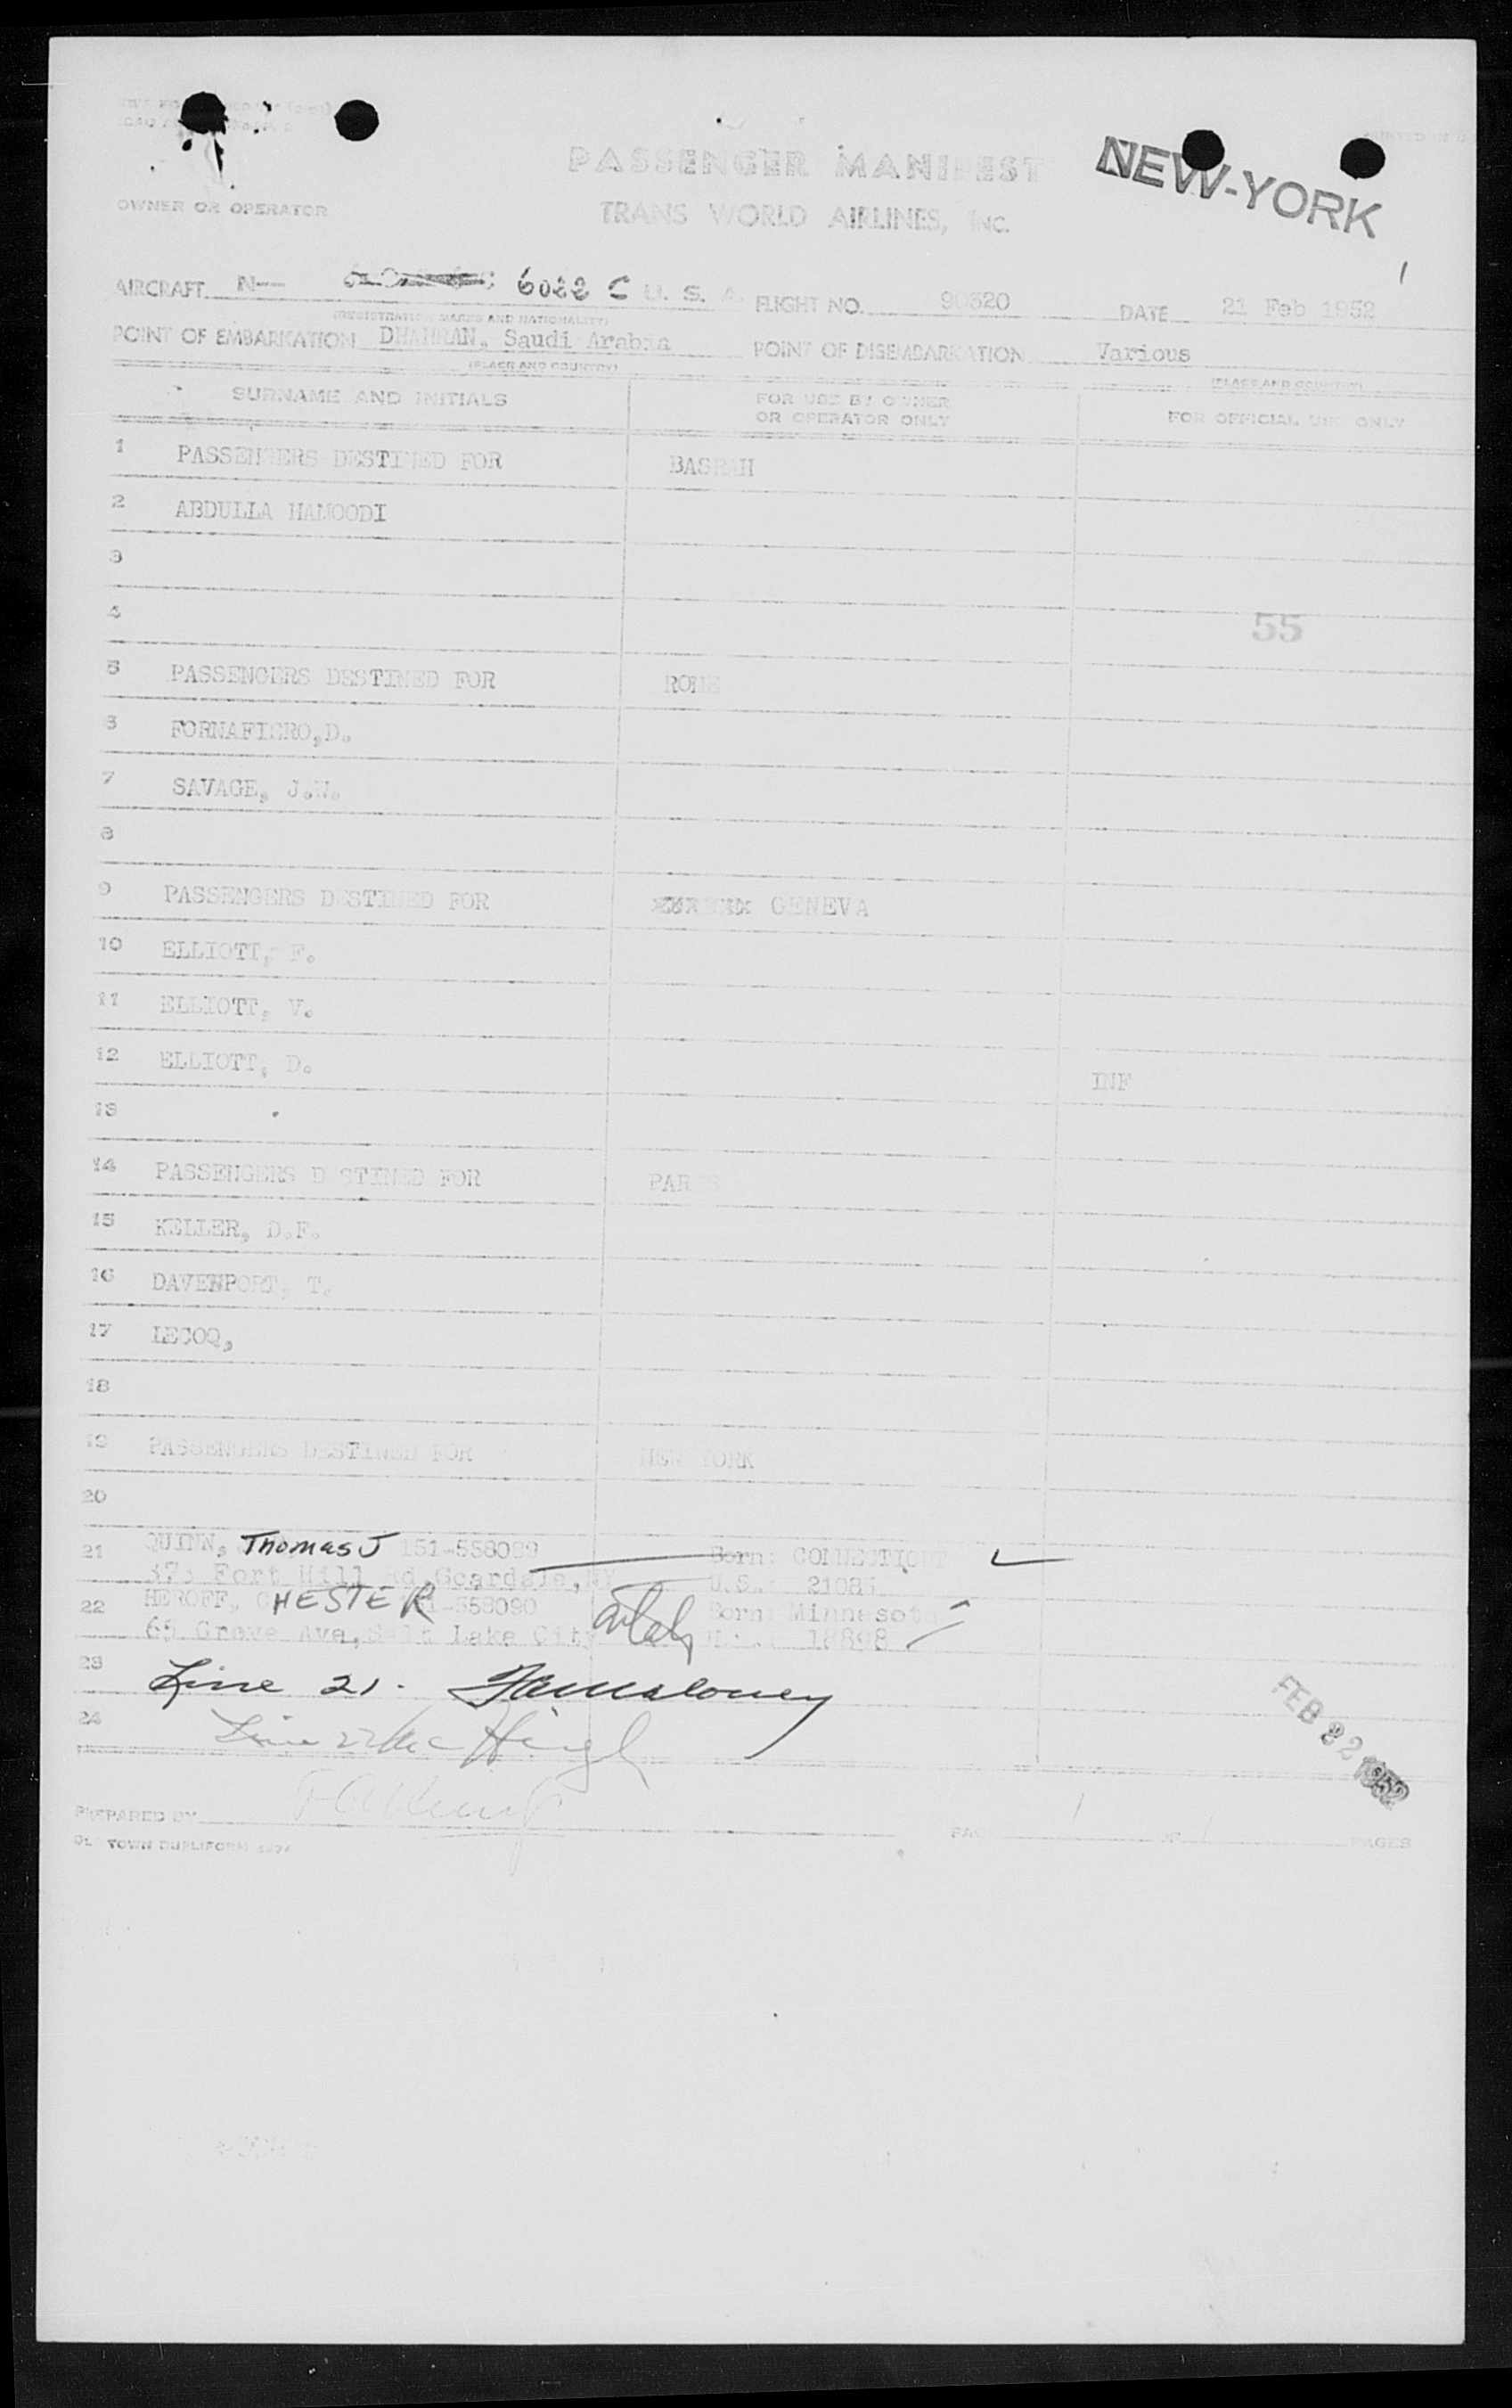 PASSENGER MANIFEST
NEW-YORK
OWNER OR OPERATOR
TRANS WORLD AIRLINES, INC.
1
AIRCRAFT N-- 6022 C U. S. A. FLIGHT NO. 90320 DATE 21 Feb 1952
(REGISTRATION MARKS AND NATIONALITY)
POINT OF EMBARKATION DHAHRAN, Saudi Arabia POINT OF DISEMBARKATION Various
(PLACE AND COUNTRY) (PLACE AND COUNTRY)
SURNAME AND INITIALS FOR USE BY OWNER OR OPERATOR ONLY FOR OFFICIAL USE ONLY
1 PASSENGERS DESTINED FOR BASRAH
2 ABDULLA HAMOODI
3
4
55
5 PASSENGERS DESTINED FOR ROME
6 FORNAFIERO,D.
7 SAVAGE, J.W.
8
9 PASSENGERS DESTINED FOR GENEVA
10 ELLIOTT, F.
11 ELLIOTT, V.
12 ELLIOTT, D. INF
13
14 PASSENGERS DESTINED FOR PARIS
15 KELLER, D.F.
16 DAVENPORT, T.
17 LECOQ,
18
19 PASSENGERS DESTINED FOR NEW YORK
20
21 QUINN, Thomas J 151-558089 Born: CONNECTICUT
373 Fort Hill Rd,Scardale,NY U.S.: 21083
22 HEROFF, CHESTER 151-558090 Born: Minnesota
65 Grove Ave, Salt Lake City 18898
23 Line 21.
24 Line 22
FEB 22 1952
PREPARED BY PAGE 1 OF 1 PAGES
OLD TOWN DUPLIFORM